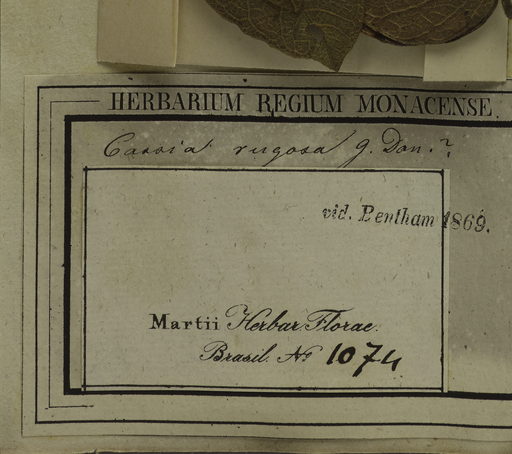 HERBARIUM REGIUM MONACENSE.
Cassia rugosa G. Don.?
vid. Bentham 1869.
Martii Herbar. Florae
Brasil. No 1074